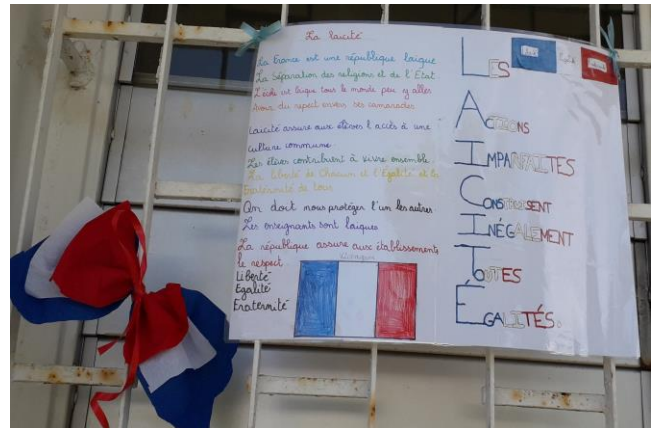 La laïcité
La France est une république laïque
La Séparation des religions et de l'Etat
L'école est laïque tous le monde peu y aller
Avoir du repect envers ses camarades
Laïcité assure aux élèves l'accès à une
culture commune
Les élèves contribuent à vivre ensemble.
La liberté de Chacun et l'Egalité et la
Fraternité de tous
On doit nous protéger l'un les autres
Les enseignants sont laïques
La république assure aux établissements
le respect
Liberté
Égalité
Fraternité
LES
ACTIONS
IMPARFAITES
CONSTRUISENT
INÉGALEMENT
TOUTES
ÉGALITÉS.